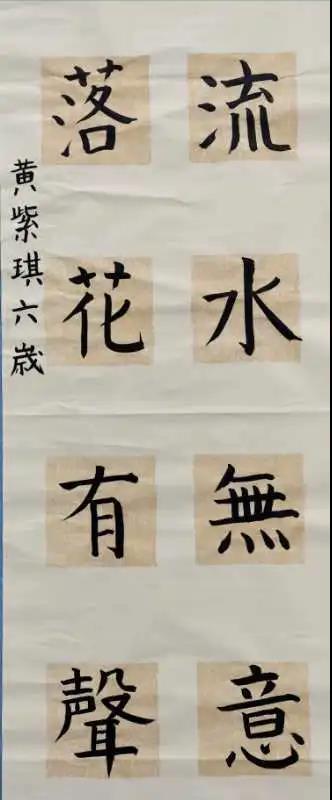 流水無意
落花有聲
黄紫琪六歲